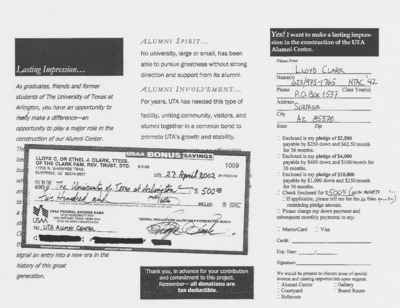 Lasting Impression...
As graduates, friends and former
students of The University of Texas at
Arlington, you have an opportunity to
really make a difference—an
opportunity to play a major role in the
construction of our Alumni Center.
ALUMNI SPIRIT...
No university, large or small, has been
able to pursue greatness without strong
direction and support from its alumni.
ALUMNI INVOLVEMENT...
For years, UTA has needed this type of
facility, uniting community, visitors, and
alumni together in a common bond to
promote UTA's growth and stability.
USAA BONUS SAVINGS
LLOYD D. OR ETHEL J. CLARK, TTEES.
OF THE CLARK FAM. REV. TRUST, DTD.
SURPRISE, AZ
1009
27 April 2002
The University of Texas at Arlington $500
hundred and
USAA FEDERAL SAVINGS BANK
USAA
UTA ALUMNI CENTER
signal an entry into a new era in the
history of this great
generation.
Thank you, in advance for your contribution
and commitment to this project.
Remember— all donations are
tax deductible.
Yes! I want to make a lasting impres-
sion in the construction of the UTA
Alumni Center.
Please Print
LLOYD CLARK
Name(s)
623/975-1765 NTAC 42
Phone Class Year(s)
P.O. Box 1537
Address
SURPRISE
City
AZ 85378
State Zip
Enclosed is my pledge of $2,500
payable by $250 down and $62.50/month
for 36 months.
Enclosed is my pledge of $4,000
payable by $400 down and $100/month
for 36 months.
Enclosed is my pledge of $10,000
payable by $1,000 down and $250/month
for 36 months.
Check Enclosed for $500
If applicable, please bill me for the
remaining pledge amount.
Please charge my down payment and
subsequent monthly payments to my:
MasterCard Visa
Card#:
Exp. Date:
Signature:
We would be pleased to discuss areas of special
interest and naming opportunities upon request.
Alumni Center Gallery
Courtyard Board Room
Ballroom